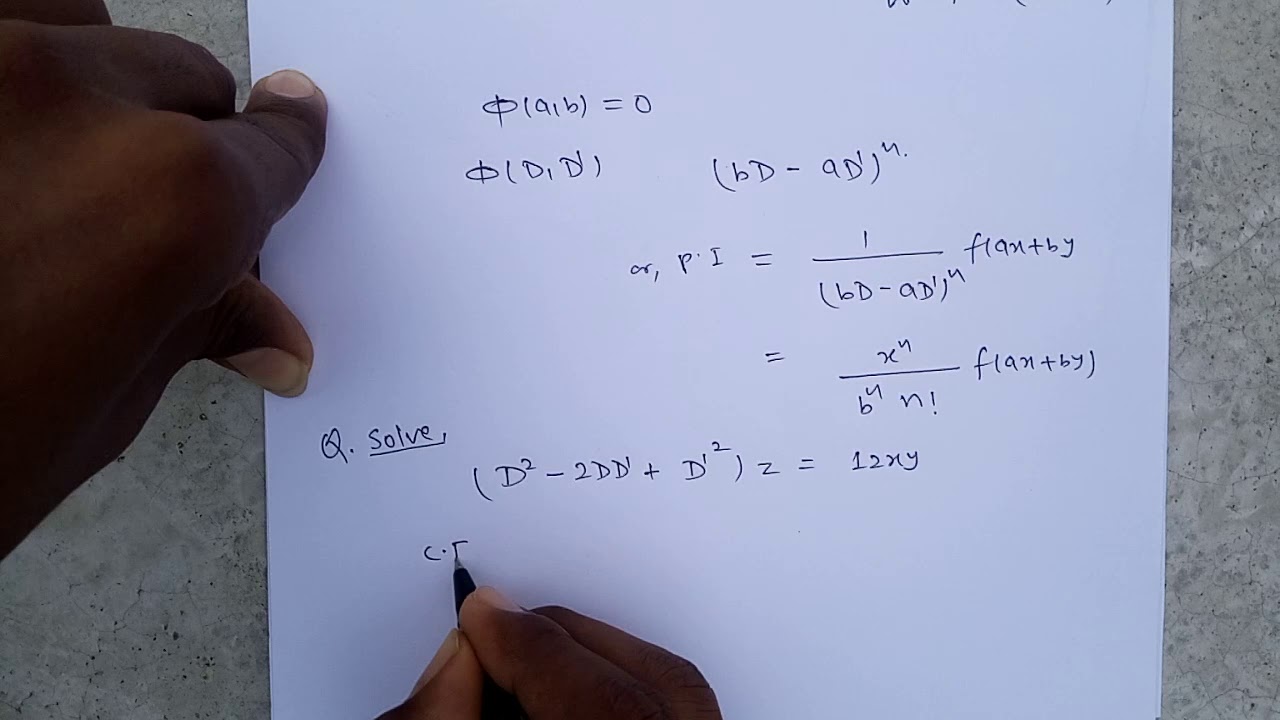 ϕ(a,b) = 0
ϕ(D,D') (bD - aD')ⁿ.
or, P.I = 1/(bD - aD')ⁿ f(ax+by
= xⁿ/(bⁿ n!) f(ax+by)
Q. Solve,
(D² - 2DD' + D'²) z = 12xy
C.F